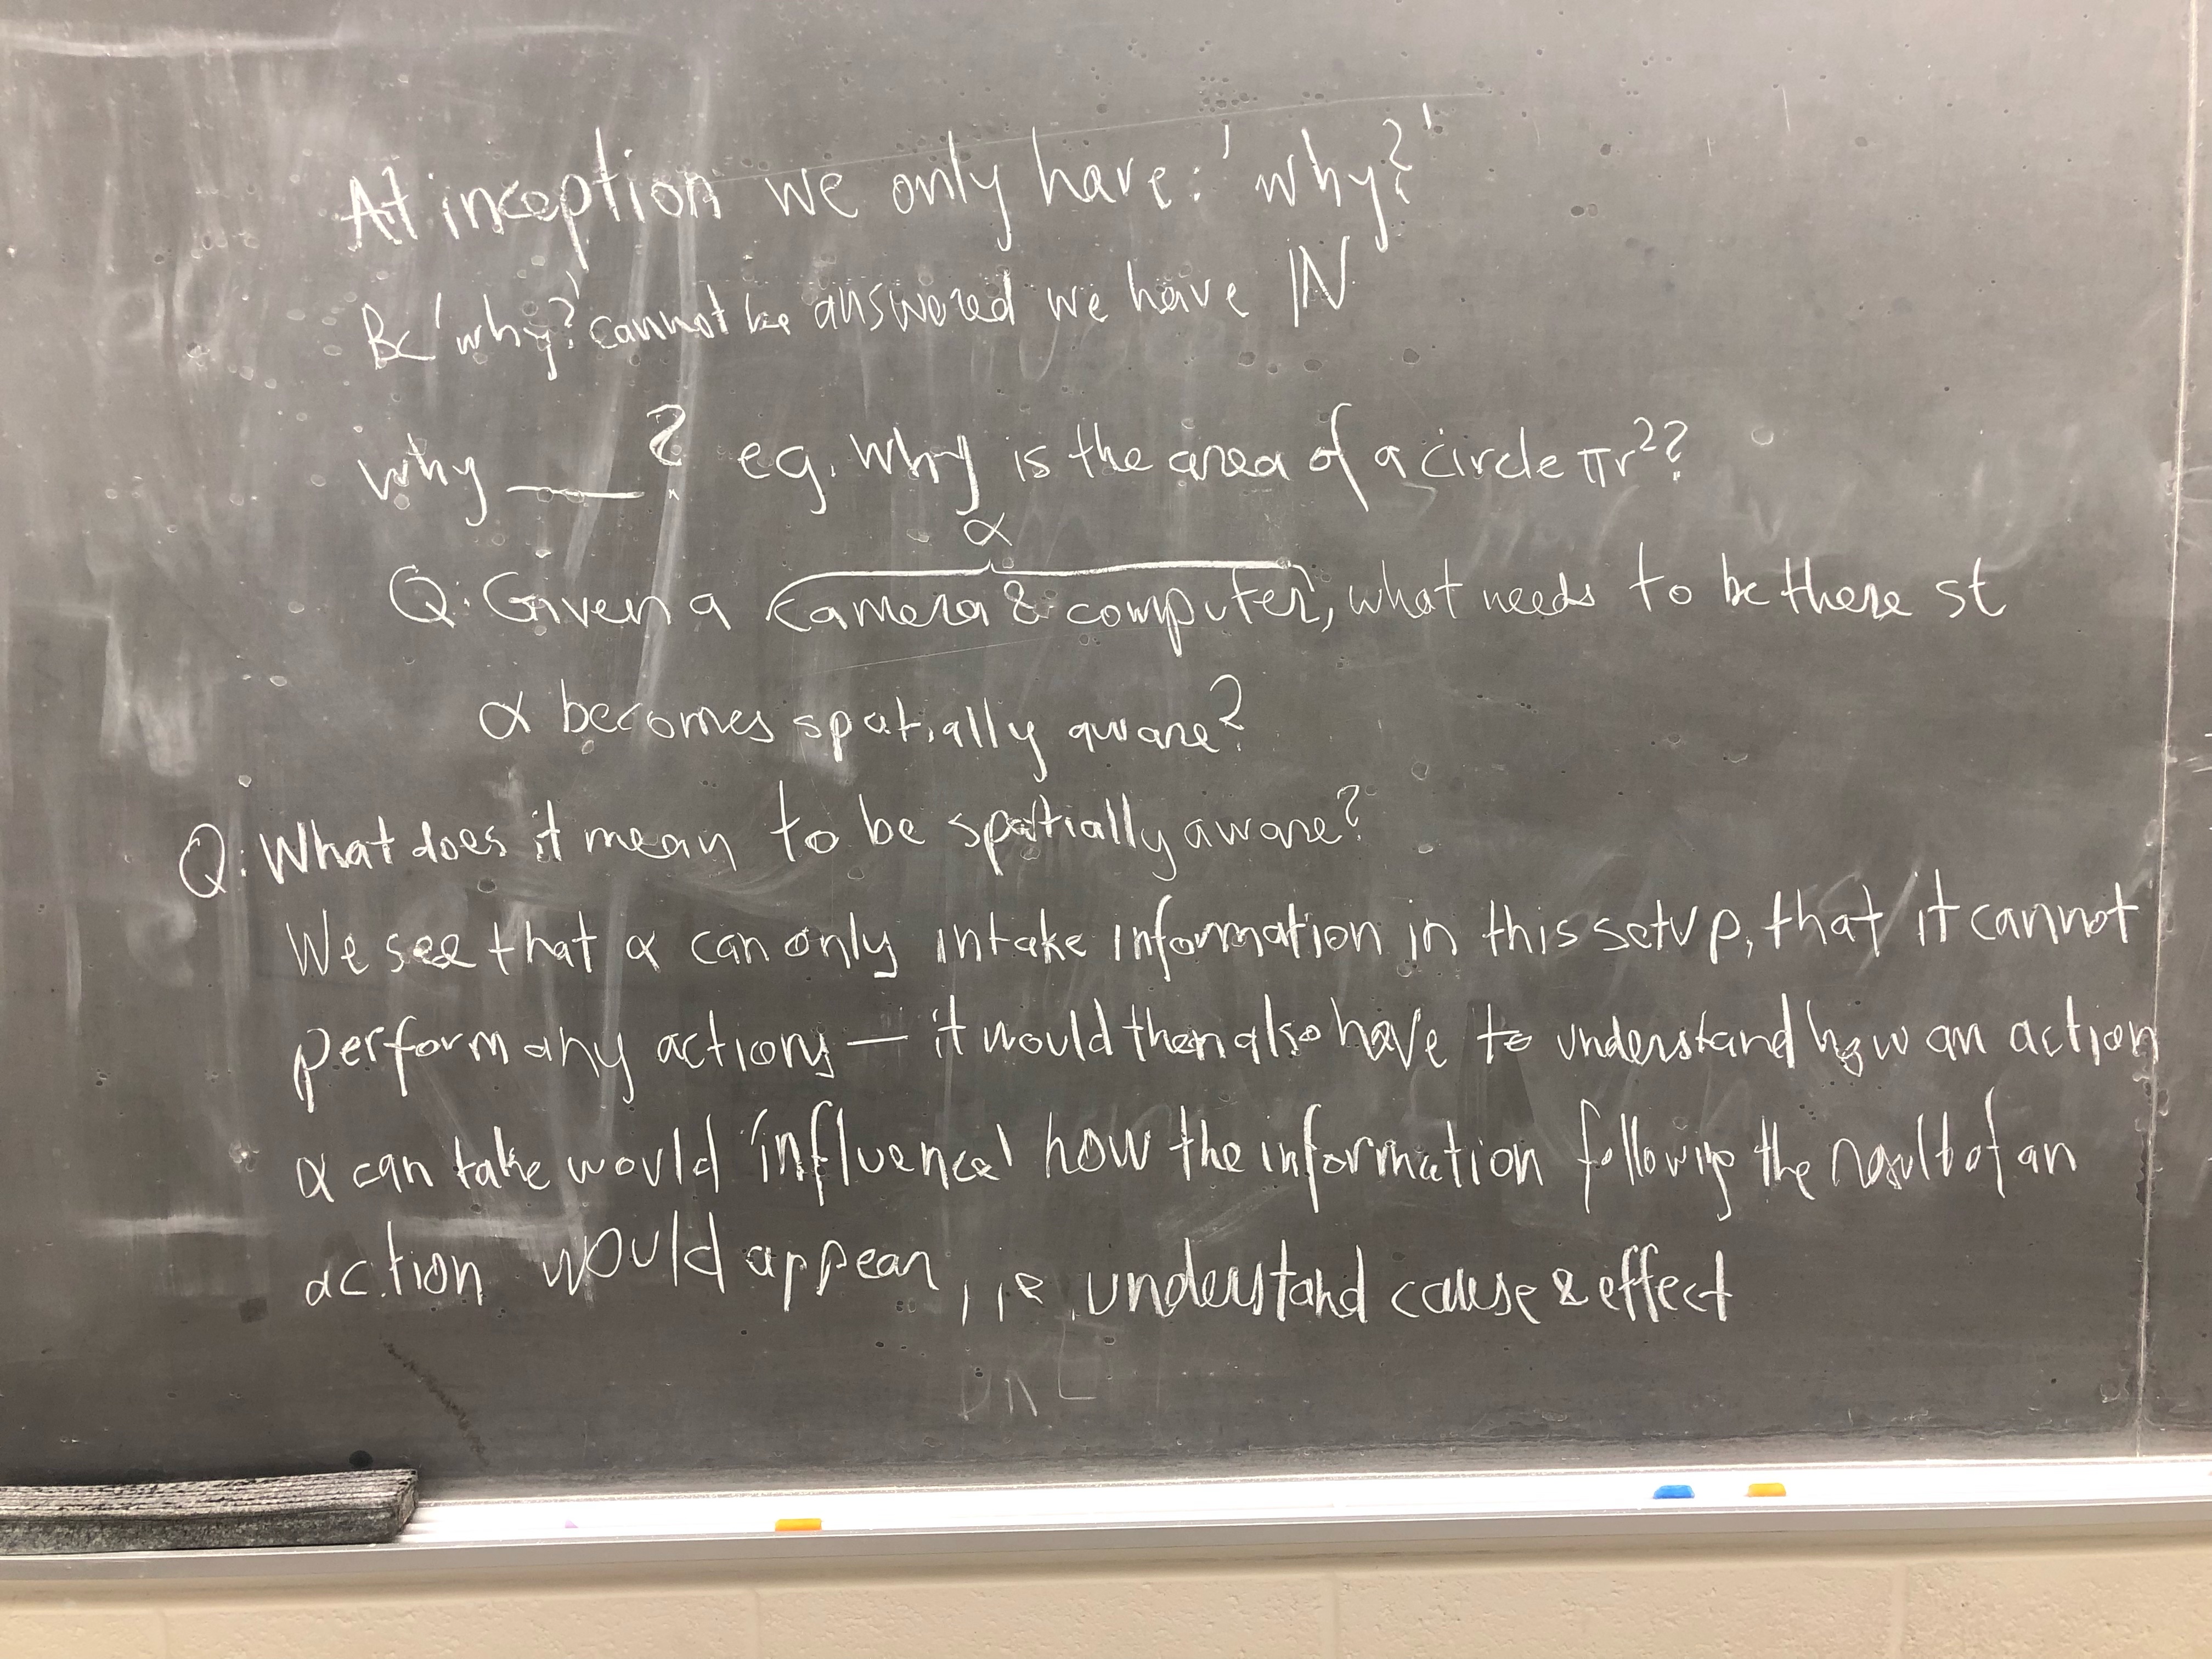 At inception we only have: 'why?'
Bc 'why?' cannot be answered we have ℕ
why ___? eg. why is the area of a circle πr²?
α
Q: Given a camera & computer, what needs to be there st
α becomes spatially aware?
Q: What does it mean to be spatially aware?
We see that α can only intake information in this setup, that it cannot
perform any actions — it would then also have to understand how an action
α can take would 'influence' how the information following the result of an
action would appear, ie. understand cause & effect